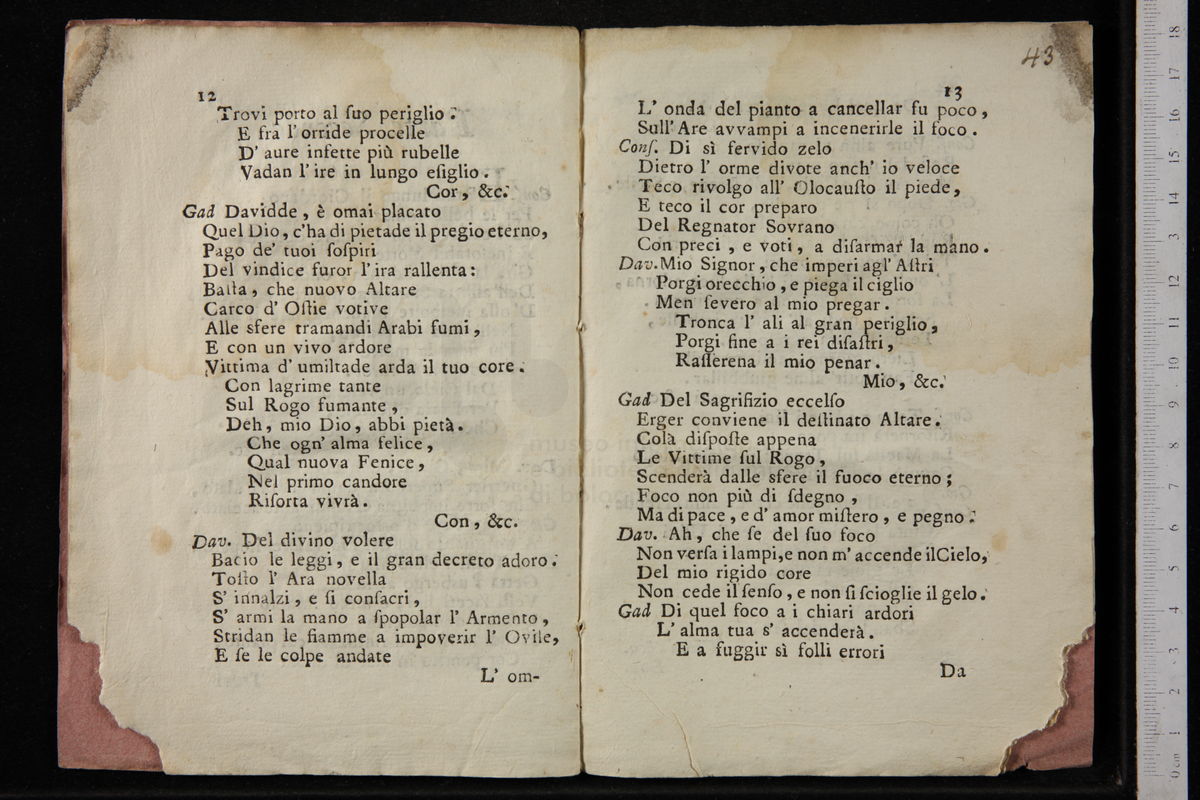 12
Trovi porto al ſuo periglio.
E fra l' orride procelle
D' aure infette più rubelle
Vadan l' ire in lungo eſiglio.
Cor, &c.
Gad Davidde, è omai placato
Quel Dio, c'ha di pietade il pregio eterno,
Pago de' tuoi ſoſpiri
Del vindice furor l' ira rallenta:
Baſta, che nuovo Altare
Carco d' Oſtie votive
Alle sfere tramandi Arabi fumi,
E con un vivo ardore
Vittima d' umiltade arda il tuo core.
Con lagrime tante
Sul Rogo fumante,
Deh, mio Dio, abbi pietà.
Che ogn' alma felice,
Qual nuova Fenice,
Nel primo candore
Riſorta vivrà.
Con, &c.
Dav. Del divino volere
Bacio le leggi, e il gran decreto adoro.
Toſto l' Ara novella
S' innalzi, e ſi conſacri,
S' armi la mano a ſpopolar l' Armento,
Stridan le fiamme a impoverir l' Ovile,
E ſe le colpe andate
L' om-
43
13
L' onda del pianto a cancellar fu poco,
Sull' Are avvampi a incenerirle il foco.
Conſ. Di sì fervido zelo
Dietro l' orme divote anch' io veloce
Teco rivolgo all' Olocauſto il piede,
E teco il cor preparo
Del Regnator Sovrano
Con preci, e voti, a diſarmar la mano.
Dav. Mio Signor, che imperi agl' Aſtri
Porgi orecchio, e piega il ciglio
Men ſevero al mio pregar.
Tronca l' ali al gran periglio,
Porgi fine a i rei diſaſtri,
Raſſerena il mio penar.
Mio, &c.
Gad Del Sagrifizio eccelſo
Erger conviene il deſtinato Altare.
Colà diſpoſte appena
Le Vittime ſul Rogo,
Scenderà dalle sfere il fuoco eterno;
Foco non più di ſdegno,
Ma di pace, e d' amor miſtero, e pegno.
Dav. Ah, che ſe del ſuo foco
Non verſa i lampi, e non m' accende il Cielo,
Del mio rigido core
Non cede il ſenſo, e non ſi ſcioglie il gelo.
Gad Di quel foco a i chiari ardori
L' alma tua s' accenderà.
E a fuggir sì folli errori
Da